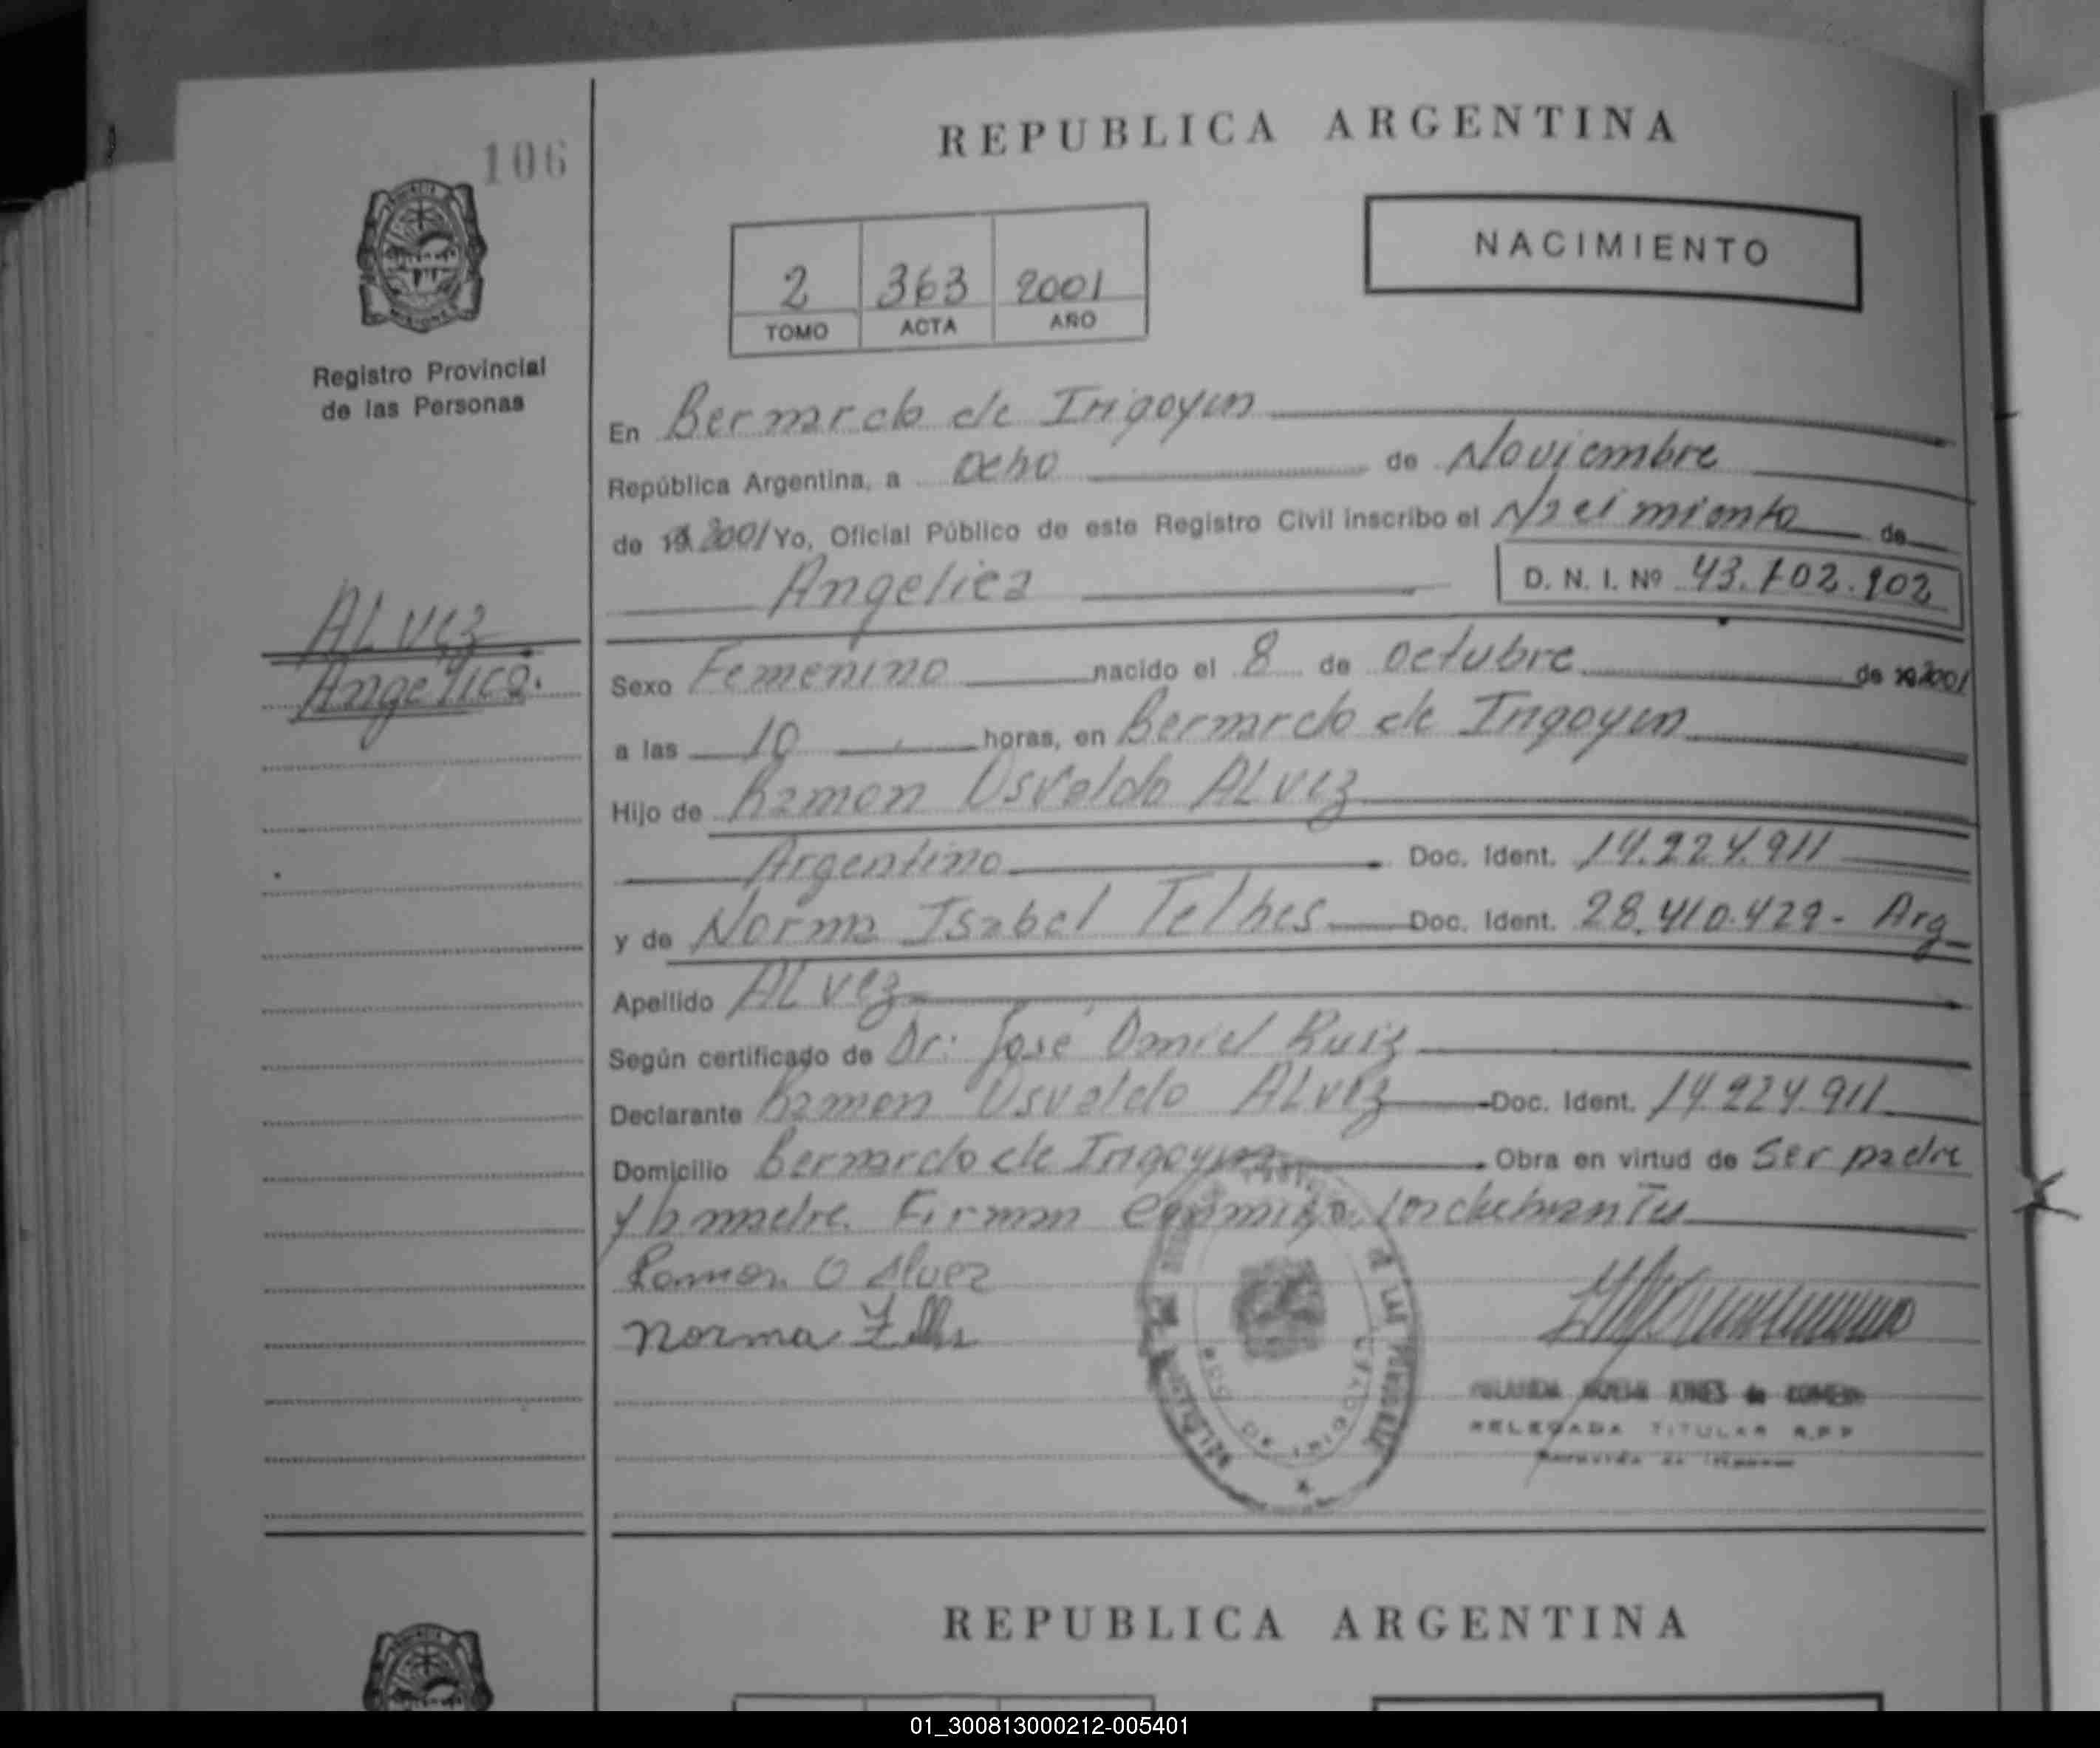 106
REPUBLICA ARGENTINA
NACIMIENTO
2 363 2001
TOMO ACTA AÑO
Registro Provincial
de las Personas
En Bernardo de Irigoyen
República Argentina, a Ocho de Noviembre
de 19 2001 Yo, Oficial Público de este Registro Civil inscribo el Nacimiento de
Angelica D. N. I. Nº 43.102.902
ALVEZ
Angelica.
Sexo Femenino nacido el 8 de Octubre de 2001
a las 10 horas, en Bernardo de Irigoyen
Hijo de Ramon Osvaldo ALVEZ
Argentino Doc. Ident. 14.224.911
y de Norma Isabel Telhes Doc. Ident. 28.410.429- Arg
Apellido ALVEZ
Según certificado de Dr. José Daniel Ruiz
Declarante Ramon Osvaldo ALVEZ Doc. Ident. 14.224.911
Domicilio Bernardo de Irigoyen Obra en virtud de Ser padre
y la madre. Firman conmigo los declarantes
Ramon O Alvez
Norma
DELEGADA TITULAR R.P.P
REPUBLICA ARGENTINA
01_300813000212-005401